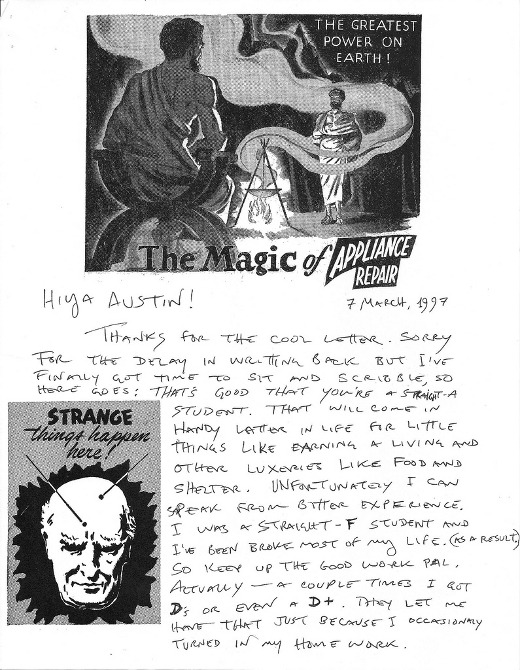 THE GREATEST
POWER ON
EARTH!
The Magic of APPLIANCE
REPAIR
HIYA AUSTIN!
7 MARCH, 1997
THANKS FOR THE COOL LETTER. SORRY
FOR THE DELAY IN WRITTING BACK BUT I'VE
FINALLY GOT TIME TO SIT AND SCRIBBLE, SO
HERE GOES: THAT'S GOOD THAT YOU'RE A STRAIGHT-A
STUDENT. THAT WILL COME IN
HANDY LATTER IN LIFE FIR LITTLE
THINGS LIKE EARNING A LIVING AND
OTHER LUXERIES LIKE FOOD AND
SHELTER. UNFORTUNATELY I CAN
SPEAK FROM BITTER EXPERIENCE.
I WAS A STRAIGHT-F STUDENT AND
I'VE BEEN BROKE MOST OF MY LIFE. (AS A RESULT.)
SO KEEP UP THE GOOD WORK PAL.
ACTUALLY — A COUPLE TIMES I GOT
D's OR EVEN A D+. THEY LET ME
HAVE THAT JUST BECAUSE I OCCASIONALY
TURNED IN MY HOME WORK.
STRANGE
things happen
here!